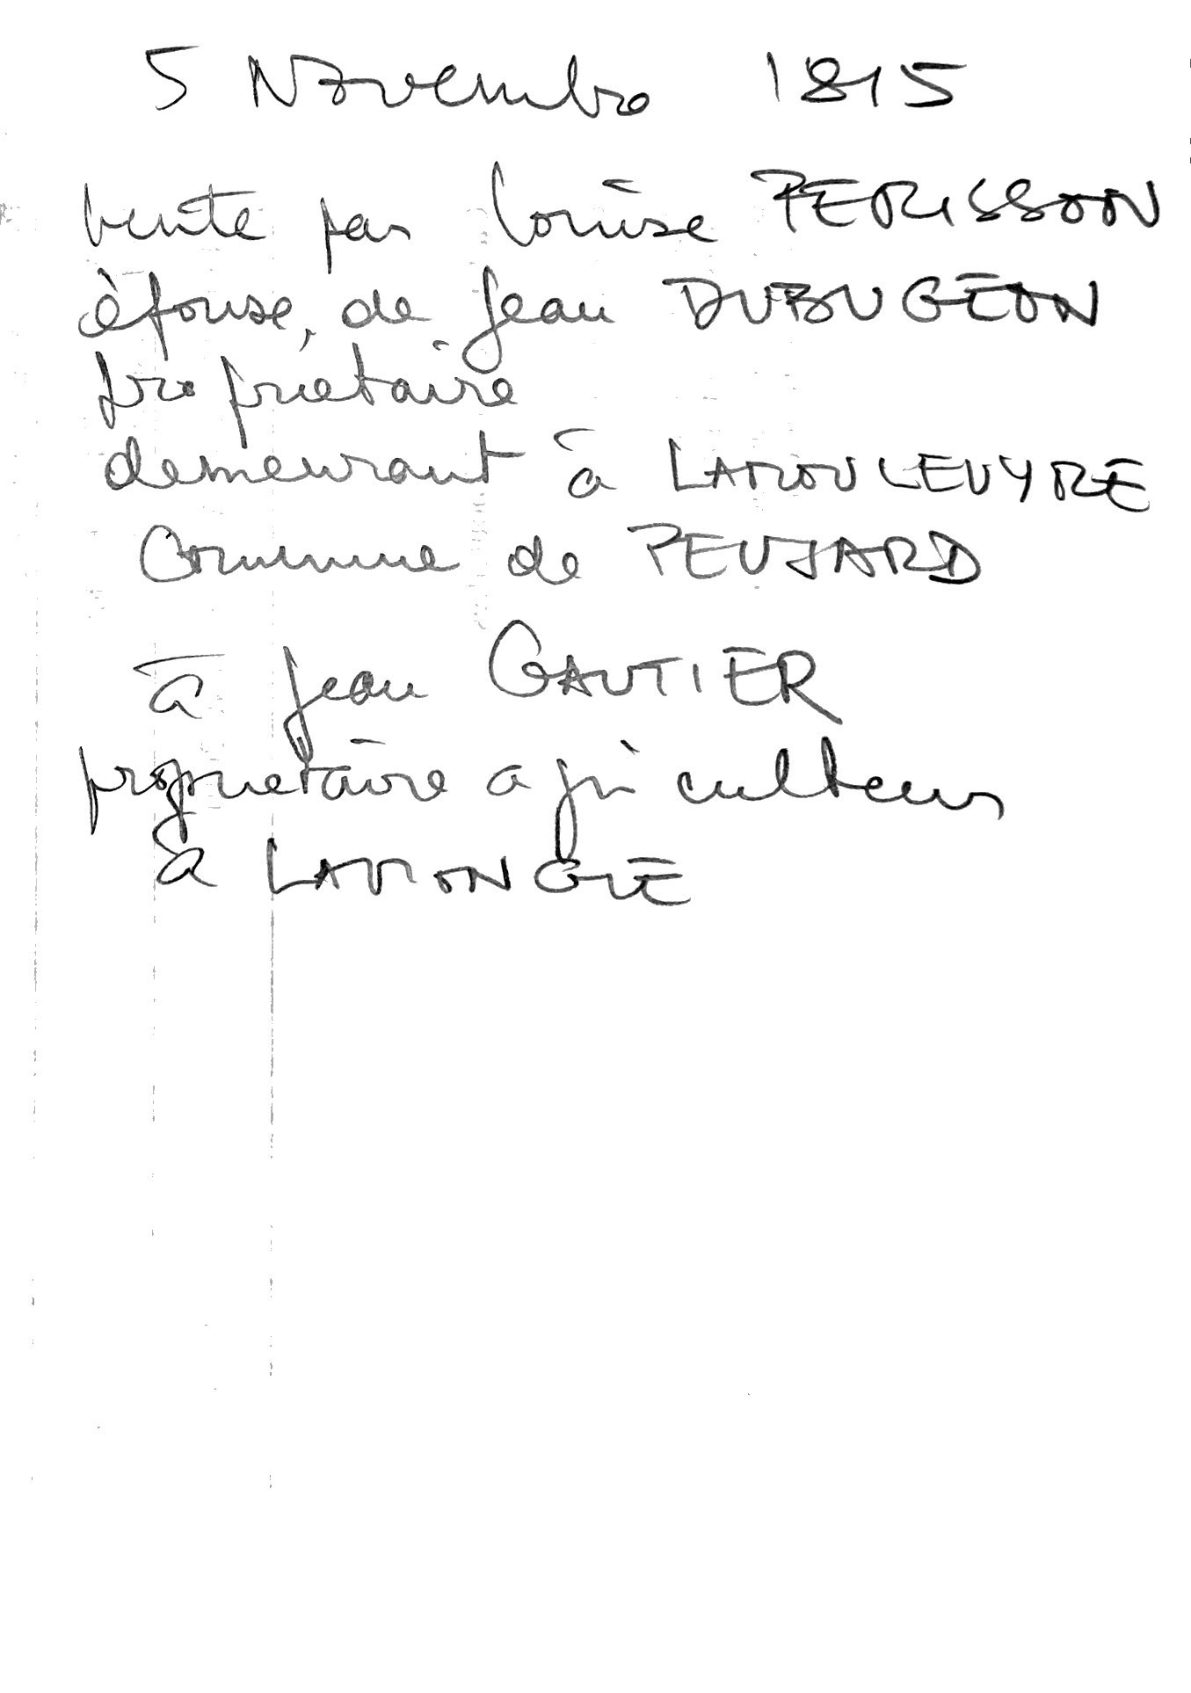 5 Novembre 1815
vente par Louise PERISSON
épouse, de Jean DUBUGEON
propriétaire
demeurant à LAROULEVYRE
Commune de PEUJARD
à Jean GAUTIER
propriétaire agriculteur
à